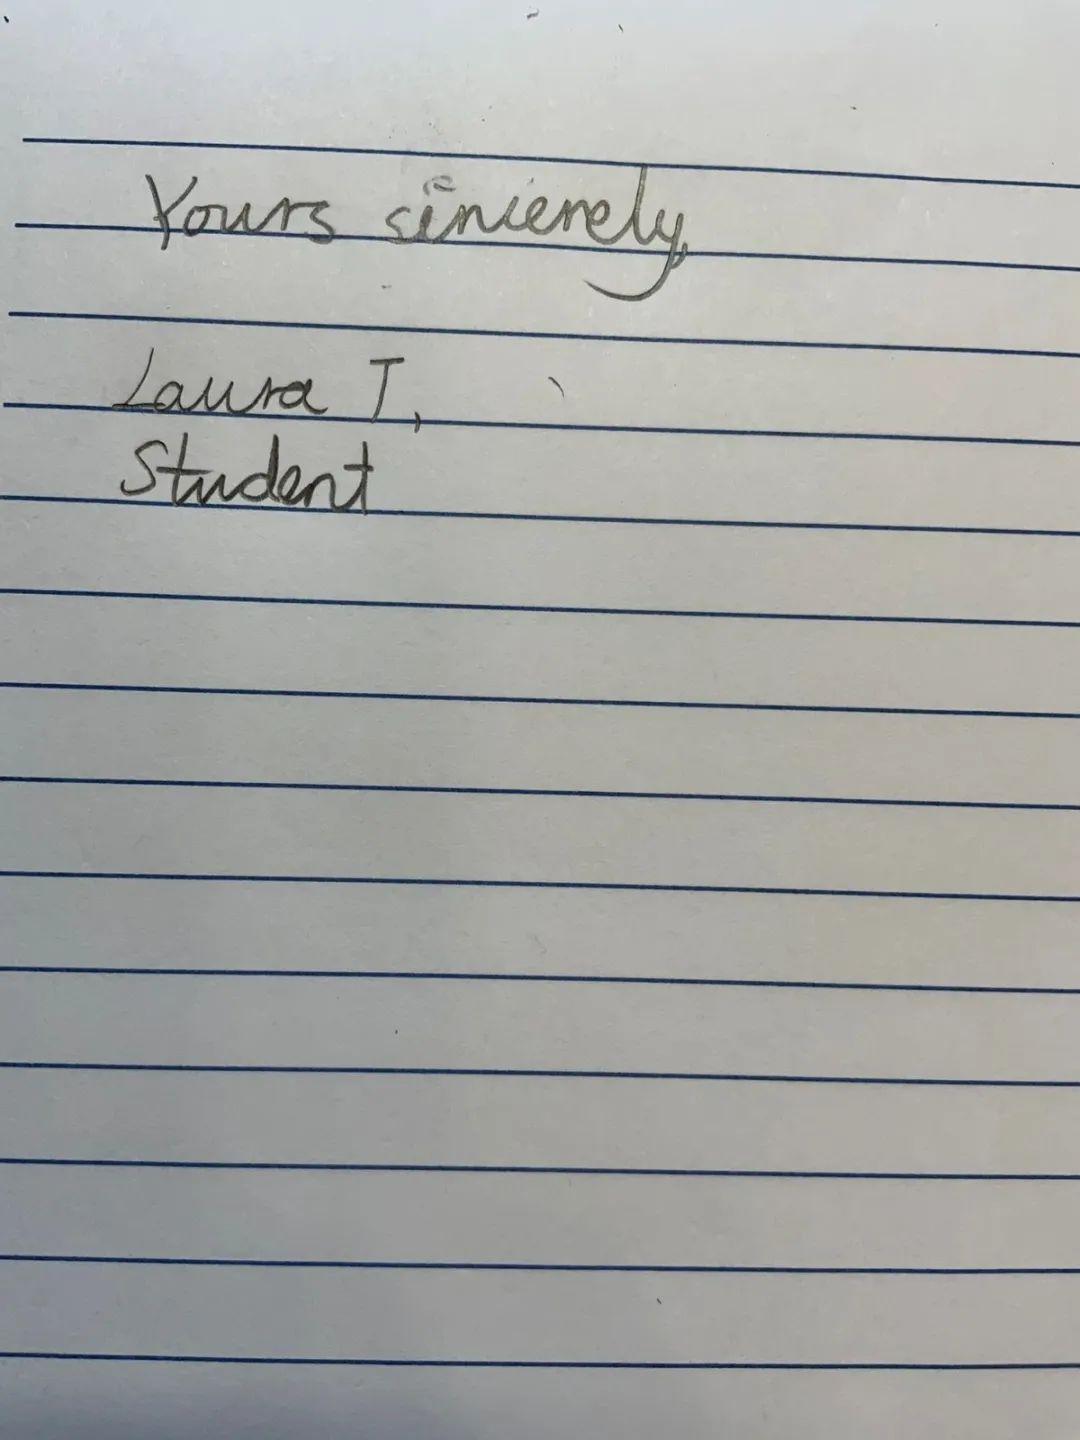 Yours sincerely,
Laura T,
Student